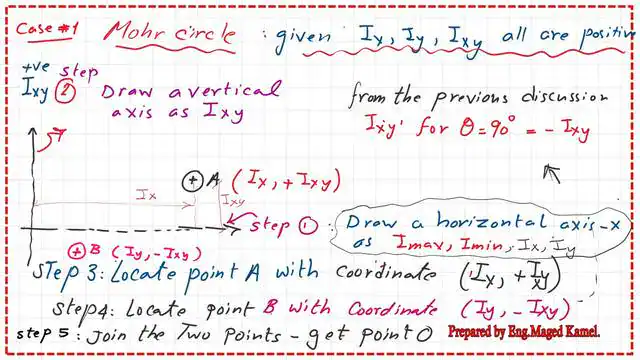 Case #1 Mohr circle : given Ix, Iy, Ixy all are positive
+ve step
Ixy ② Draw a vertical
axis as Ixy
from the previous discussion
Ix'y' for θ = 90° = - Ixy
⊕ A (Ix, +Ixy)
Ix
Ixy
step ① : Draw a horizontal axis-x
as Imax, Imin, Ix, Iy
⊕ B (Iy, -Ixy)
STep 3: Locate point A with coordinate (Ix, +Ixy)
step4: Locate point B with Coordinate (Iy, -Ixy)
step 5: Join the Two points - get point O
Prepared by Eng.Maged Kamel.